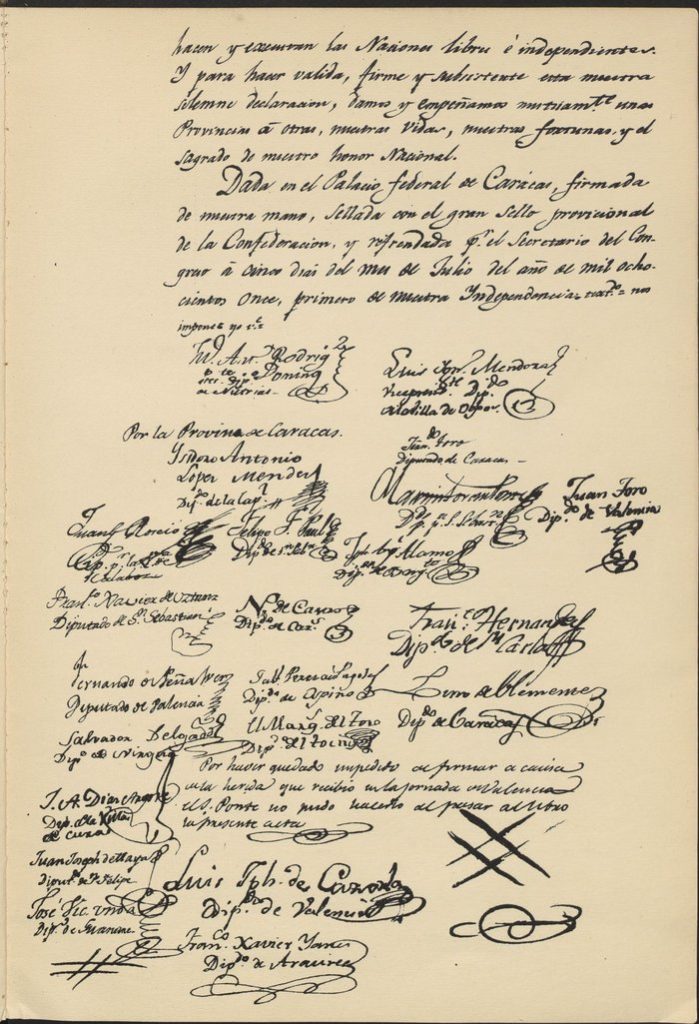 hacen y executan las Naciones libres é independientes.
Y para hacer valida, firme y subsistente esta nuestra
solemne declaracion, damos y empeñamos mutuamte. unas
Provincias á otras, nuestras vidas, nuestras fortunas, y el
sagrado de nuestro honor Nacional.
Dada en el Palacio federal de Carácas, firmada
de nuestra mano, sellada con el gran sello provicional
de la Confederacion, y refrendada pr. el Secretario del Con-
greso á cinco dias del mes de Julio del año de mil ocho-
cientos once, primero de nuestra Yndependencia
Ant. Rodrigz
Doming
Luis Mendoza
Vicepresidte. Dipdo.
de la Villa de Obpos.
Por la Provina. de Caracas.
Ysidoro Antonio
Lopez Mendez
Dipo. de la Capl.
Toro
Diputado de Caracas
Martin Tovar Ponte
Dipdo.
Juan Toro
Dipdo. de Valencia
Juan G. Roscio
Felipe F. Paul
Alamo
Franco. Xavier de Uztariz
Diputado de Sn. Sebastian
Ns. de Castro
Dipdo. de Cars.
Franco. Hernandez
Dipdo. de Sn. Carlos
Fernando de Peñalver
Diputado de Valencia
Dipdo. de Ospino
Lino de Clemente
Dipdo. de Caracas
Salvador Delgado
Dipo. de Nirgua
El Marqs. del Toro
Dipo. del Tocuyo
Por haver quedado impedido de firmar á causa
de la herida que recibio en la jornada de Valencia
el S. Ponte no pudo hacerlo al pasar al libro
la presente acta
J. A. Diaz Argote
Dep. de la Villa
de Cura
Juan Joseph de Maya
Diputdo. de S. Felipe
Luis Jph. de Cazorla
Dipdo. de Valencia
José Vic. Unda
Dipo. de Guanare
Franco. Xavier Yanes
Dipdo. de Araure